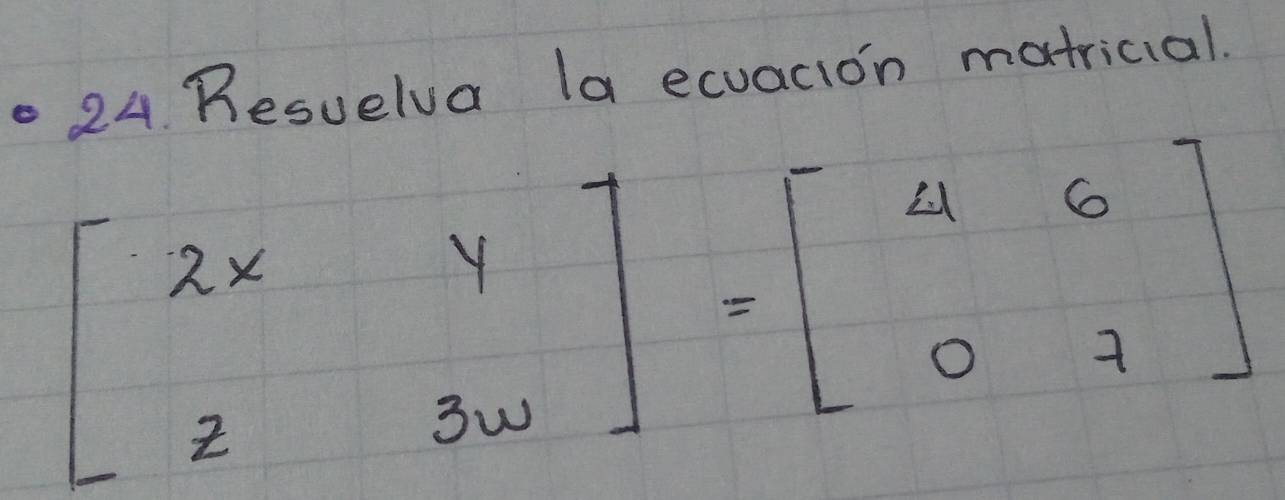 • 24. Resuelva la ecuación matricial.
[ 2x y ] = [ 4 6 ]
[ z 3w ] [ 0 7 ]